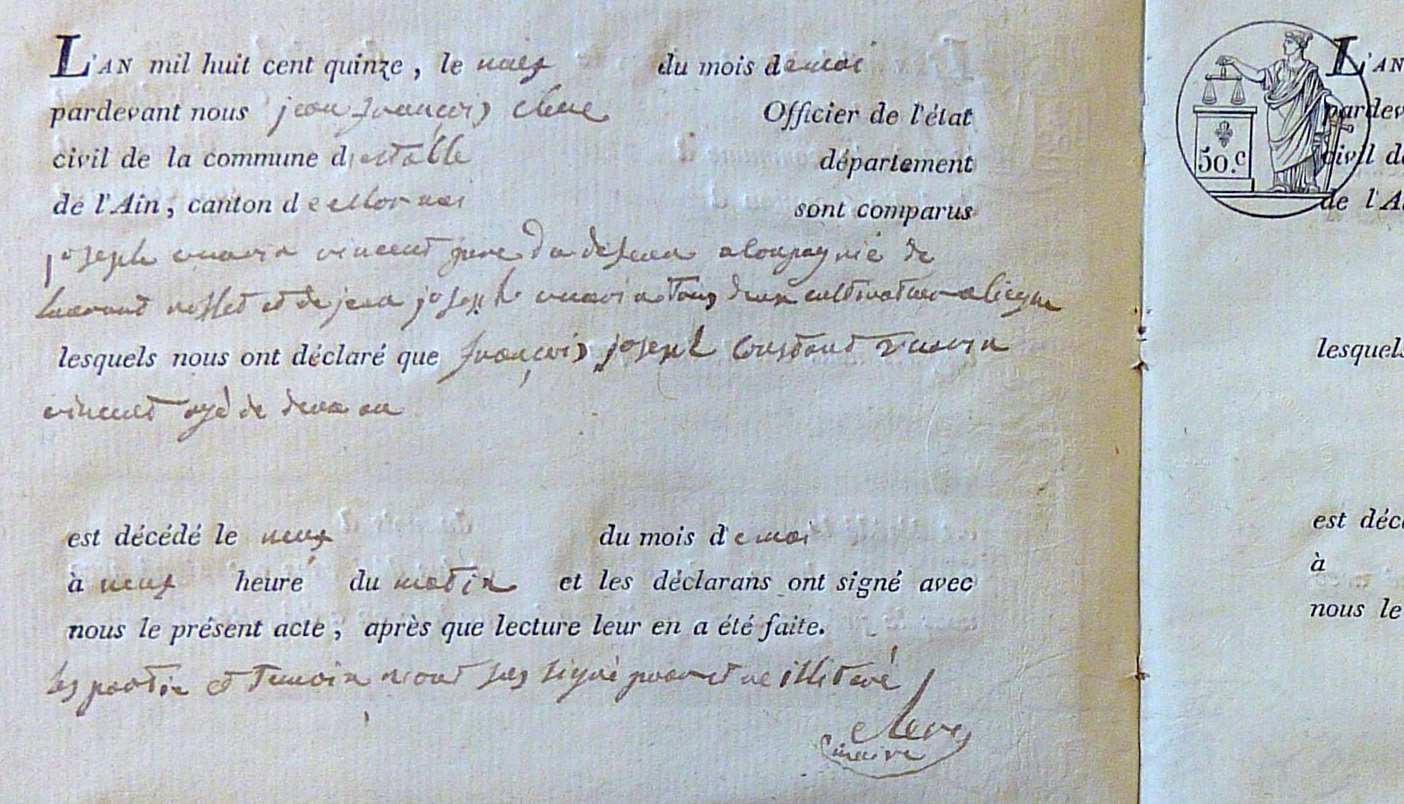 L'AN mil huit cent quinze, le neuf du mois de mai
pardevant nous jean françois Officier de l'état
civil de la commune d département
de l'Ain, canton de sont comparus
joseph vincent pere du defunt acompagnié de
et de jean joseph tous deux cultivateur a
lesquels nous ont déclaré que françois joseph Constant
vincent agé de deux an
est décédé le neuf du mois de mai
à neuf heure du matin et les déclarans ont signé avec
nous le présent acte, après que lecture leur en a été faite.
les partie et temoin n'ont pas signé pour etre illiteré
maire
50.c
L'AN
pardev
civil de
de l'A
lesquels
est déc
à
nous le